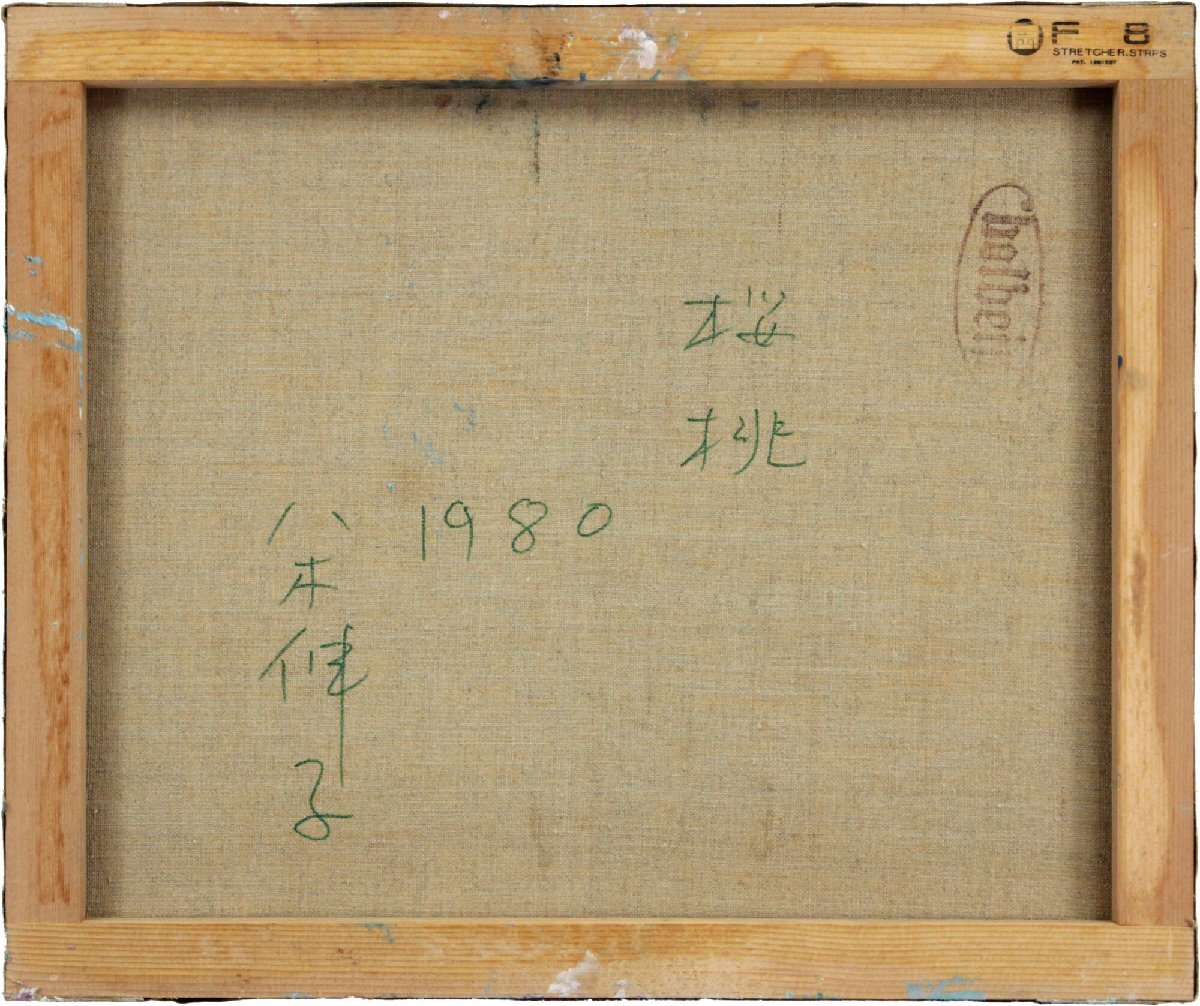 F 8
STRETCHER.STRPS
PAT.
holbein
桜桃
1980
八木伸子